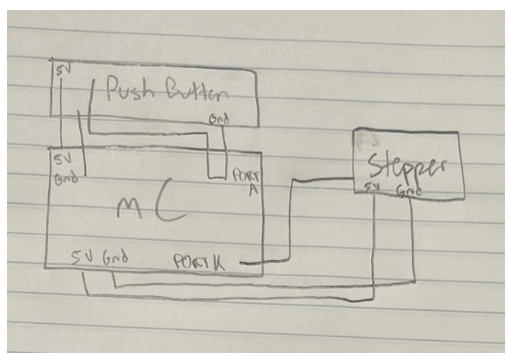 5V
Push Button
Gnd
5V
Gnd
PORT
A
MC
5V Gnd
PORT K
Stepper
5V
Gnd